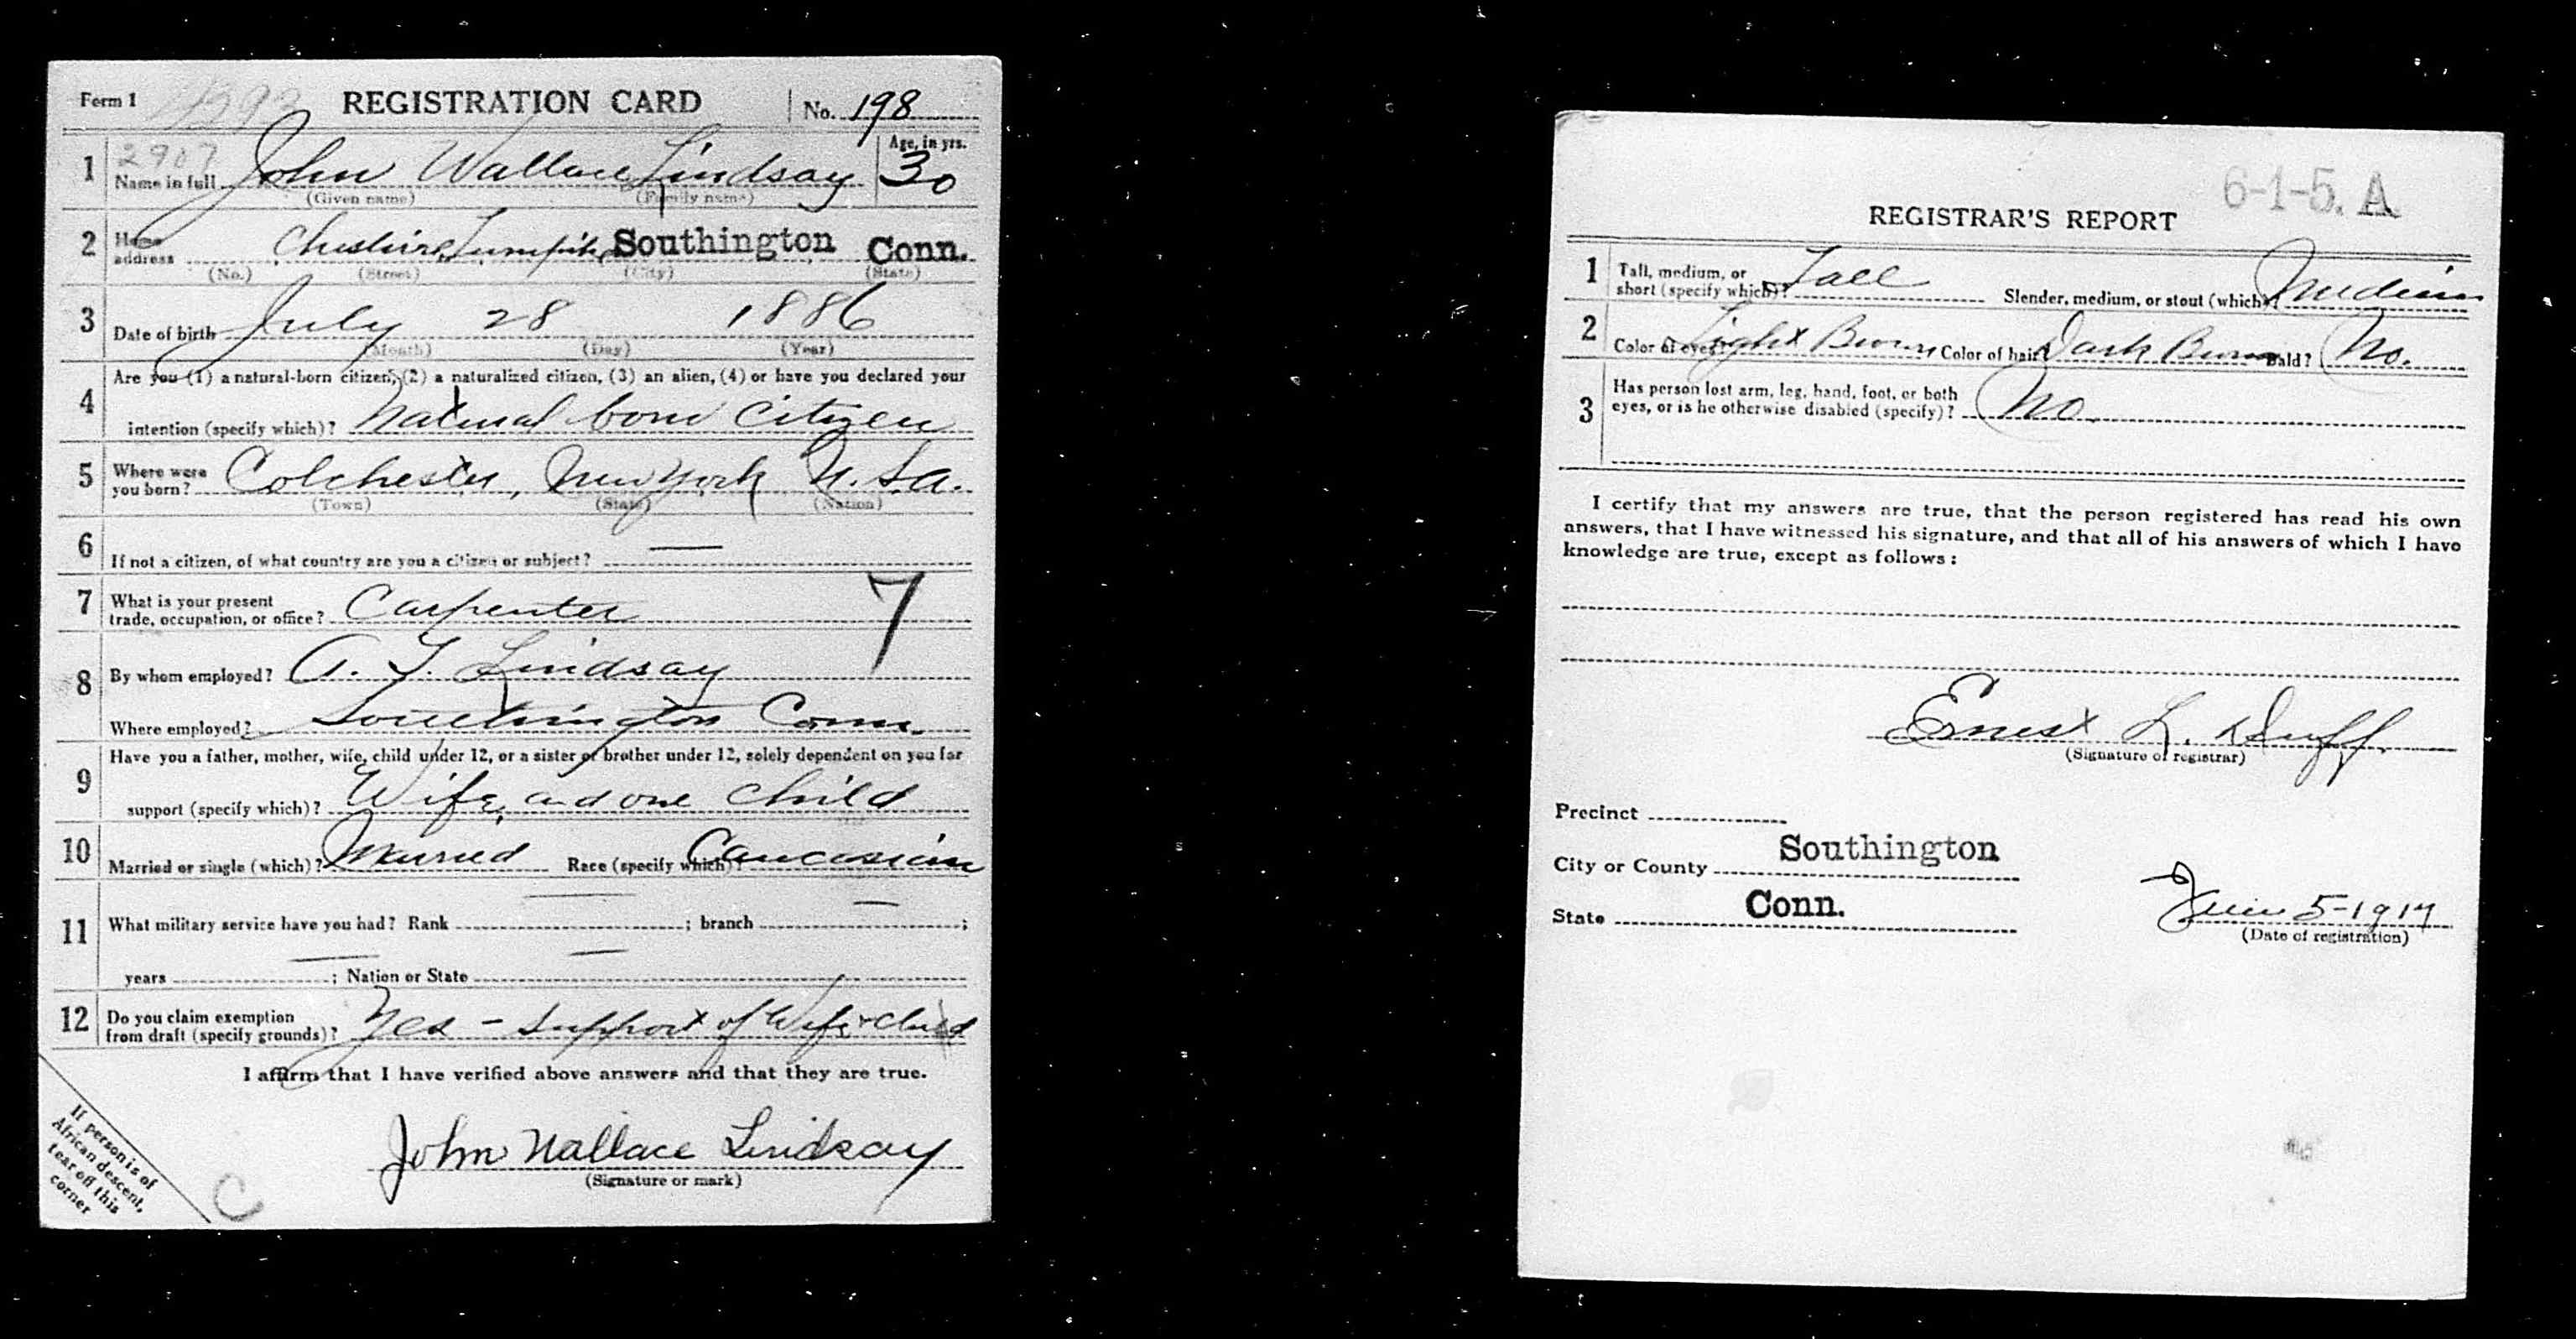 Form 1 REGISTRATION CARD No. 198
2907
1 Name in full John Wallace Lindsay Age, in yrs. 30
(Given name) (Family name)
2 Home address Cheshire Turnpike Southington Conn.
(No.) (Street) (City) (State)
3 Date of birth July 28 1886
(Month) (Day) (Year)
4 Are you (1) a natural-born citizen, (2) a naturalized citizen, (3) an alien, (4) or have you declared your
intention (specify which)? Natural born citizen
5 Where were you born? Colchester, New York U.S.A.
(Town) (State) (Nation)
6 If not a citizen, of what country are you a citizen or subject? —
7 What is your present trade, occupation, or office? Carpenter 7
8 By whom employed? A. T. Lindsay
Where employed? Southington Conn.
9 Have you a father, mother, wife, child under 12, or a sister or brother under 12, solely dependent on you for
support (specify which)? Wife, and one child
10 Married or single (which)? Married Race (specify which)? Caucasian
11 What military service have you had? Rank — ; branch — ;
years — ; Nation or State —
12 Do you claim exemption from draft (specify grounds)? Yes - support of Wife + child
I affirm that I have verified above answers and that they are true.
John Wallace Lindsay
(Signature or mark)
If person is of
African descent,
tear off this
corner
C
6-1-5. A
REGISTRAR'S REPORT
1 Tall, medium, or short (specify which)? Tall Slender, medium, or stout (which)? Medium
2 Color of eyes? Light Brown Color of hair? Dark Brown Bald? No.
3 Has person lost arm, leg, hand, foot, or both
eyes, or is he otherwise disabled (specify)? No.
I certify that my answers are true, that the person registered has read his own
answers, that I have witnessed his signature, and that all of his answers of which I have
knowledge are true, except as follows:
Ernest L. Duff
(Signature of registrar)
Precinct
City or County Southington
State Conn. June 5-1917
(Date of registration)